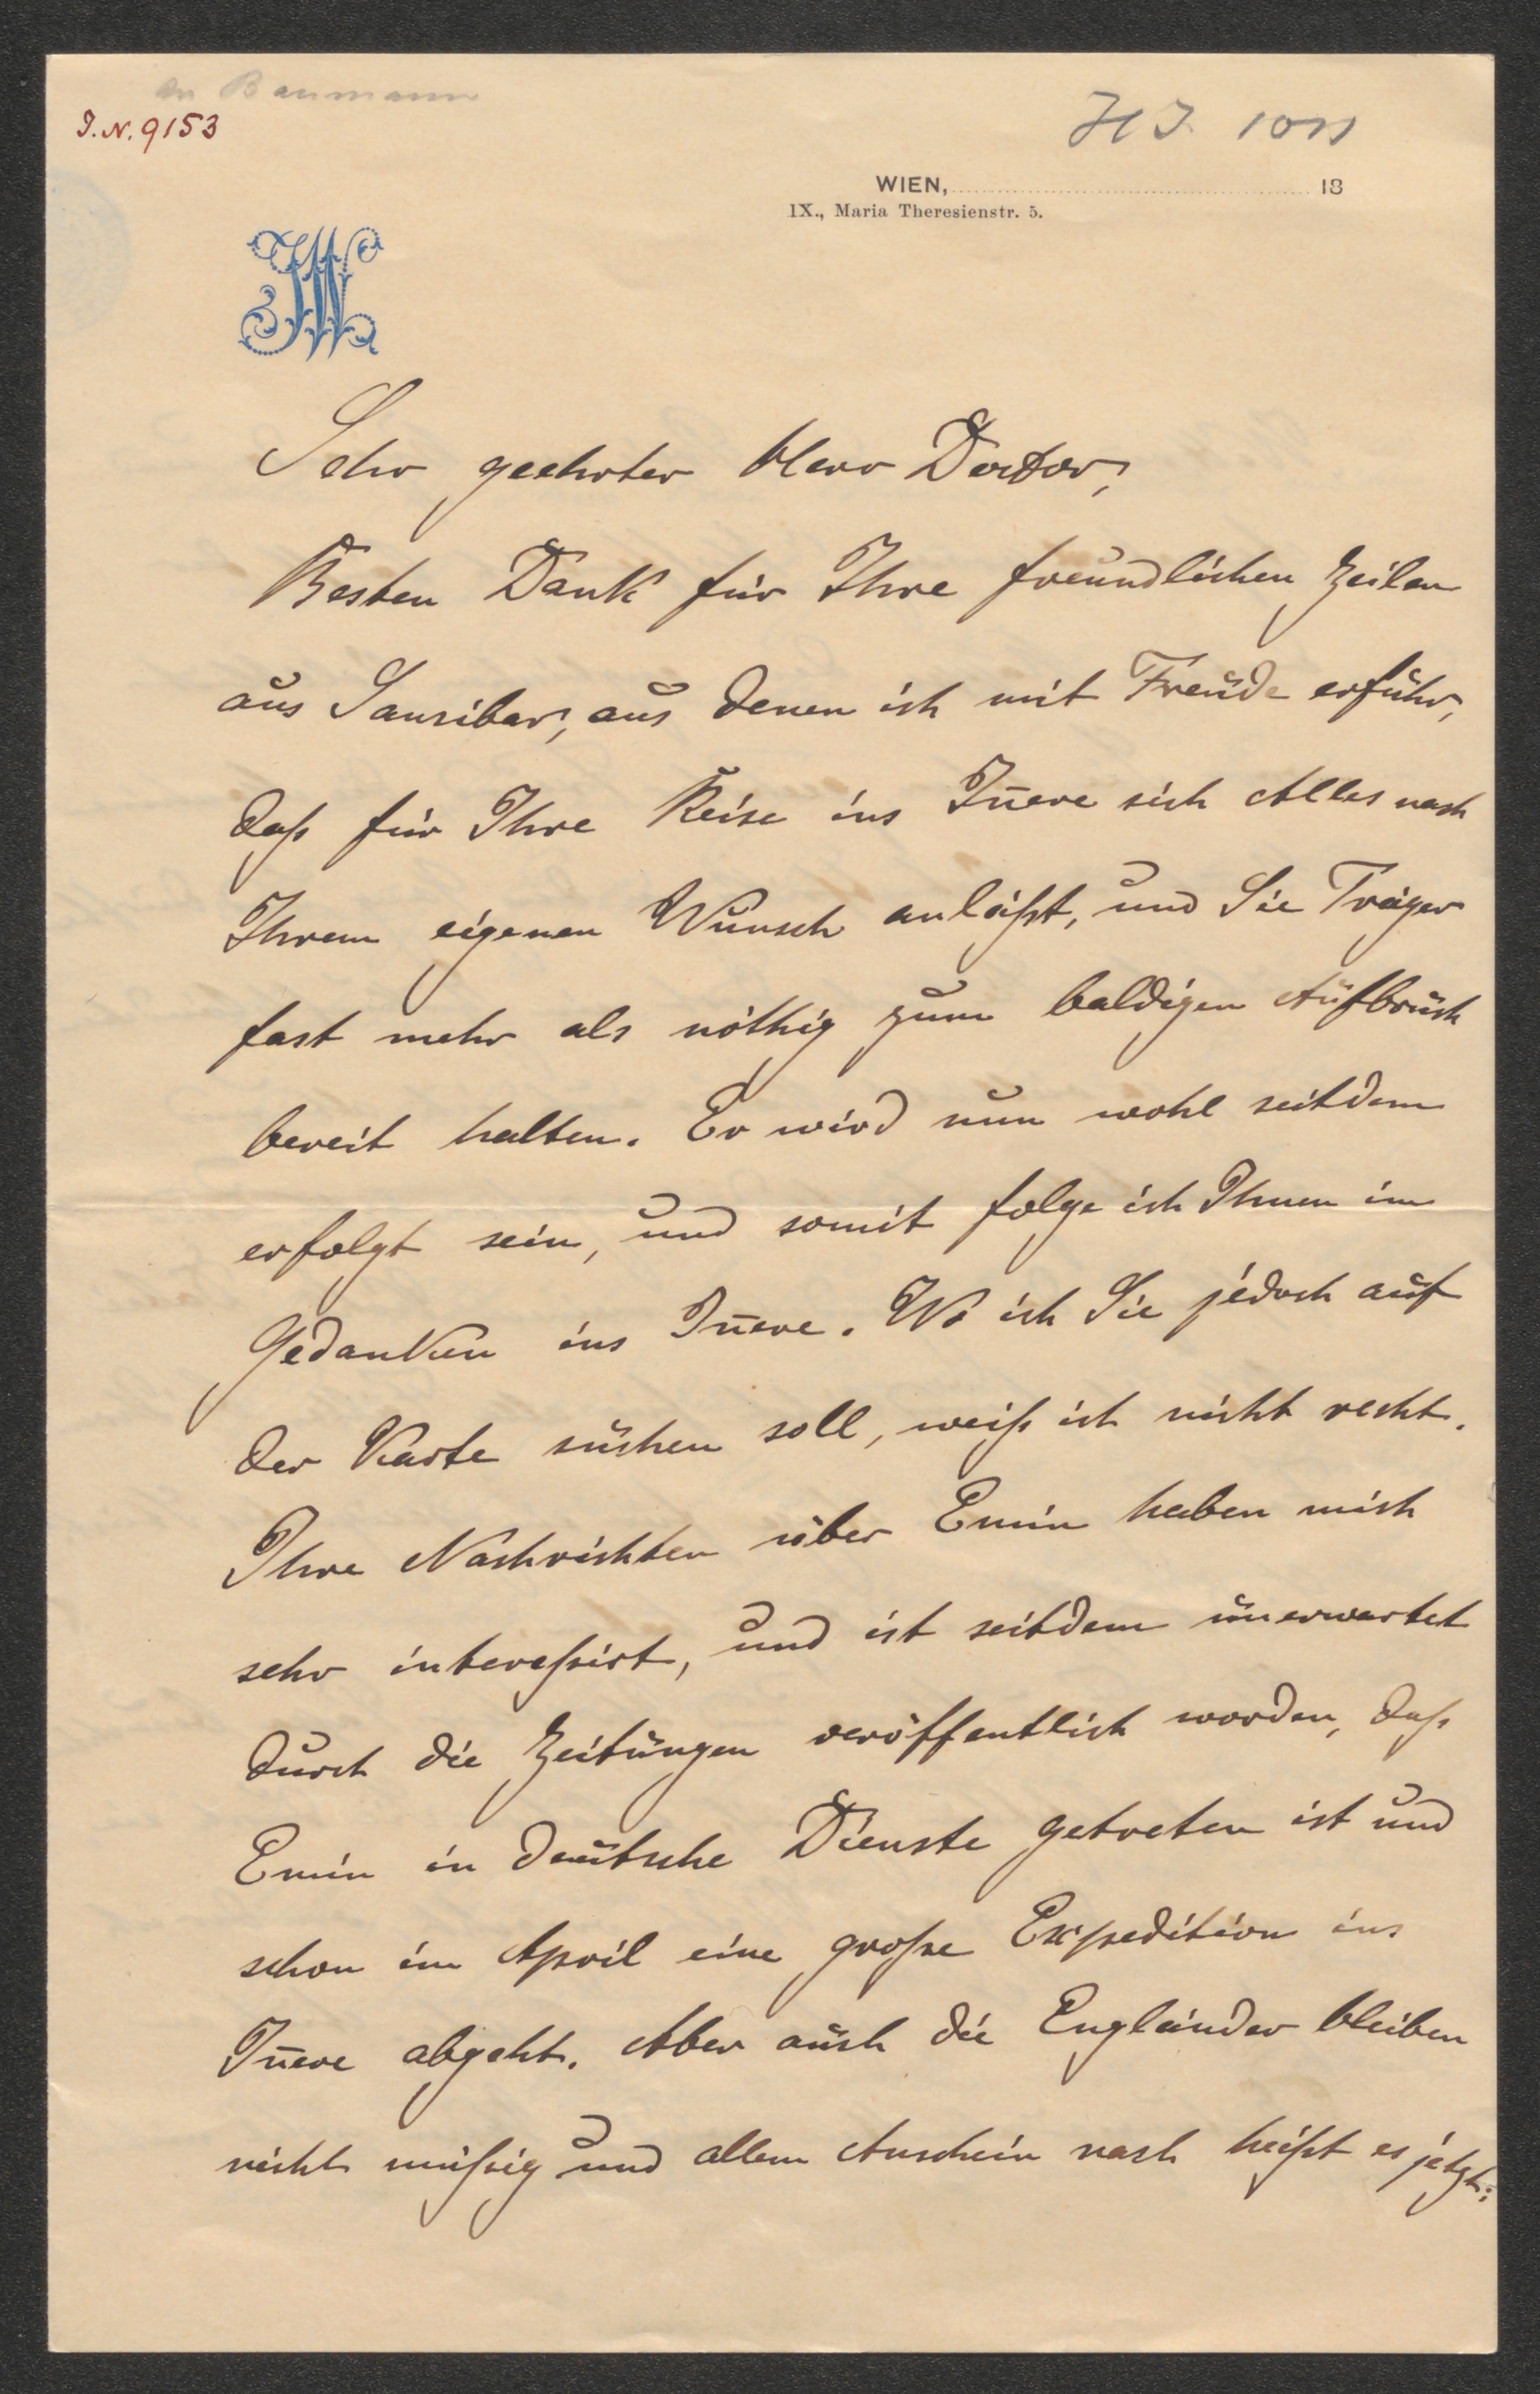 An Baumann
I.N. 9153
WIEN, 18
IX., Maria Theresienstr. 5.
Sehr geehrter Herr Doctor,
Besten Dank für Ihre freundlichen Zeilen
aus Sansibar, aus denen ich mit Freude erfuhr,
daß für Ihre Reise ins Iñere sich Alles nach
Ihrem eigenen Wunsch anläßt, und Sie Träger
fast mehr als nöthig zum baldigen Aufbruch
bereit halten. Er wird nun wohl seitdem
erfolgt sein, und somit folge ich Ihnen im
Gedanken ins Iñere. Wo ich Sie jedoch auf
der Karte suchen soll, weiß ich nicht recht.
Ihre Nachrichten über Emin haben mich
sehr interessirt, und ist seitdem unerwartet
durch die Zeitungen veröffentlich worden, daß
Emin in deutsche Dienste getreten ist und
schon im April eine große Expedition ins
Iñere abgeht. Aber auch die Engländer bleiben
nicht müßig und allem Anschein nach heißt es jetzt: